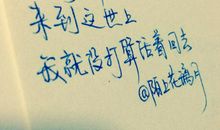 来到这世上
我就没打算活着回去
@陌上花满月